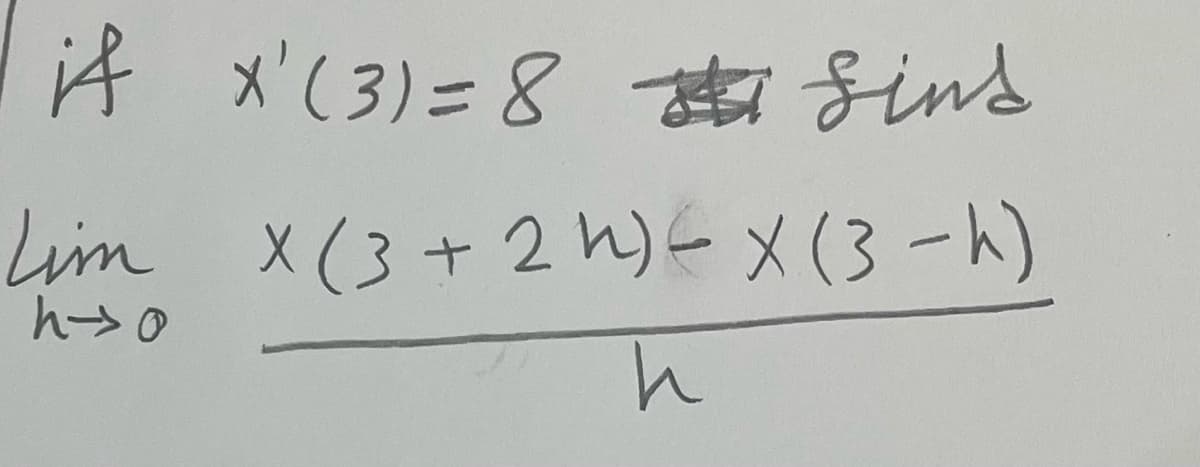 if x'(3) = 8 find
Lim x(3 + 2h) - x(3 - h)
h→0
h